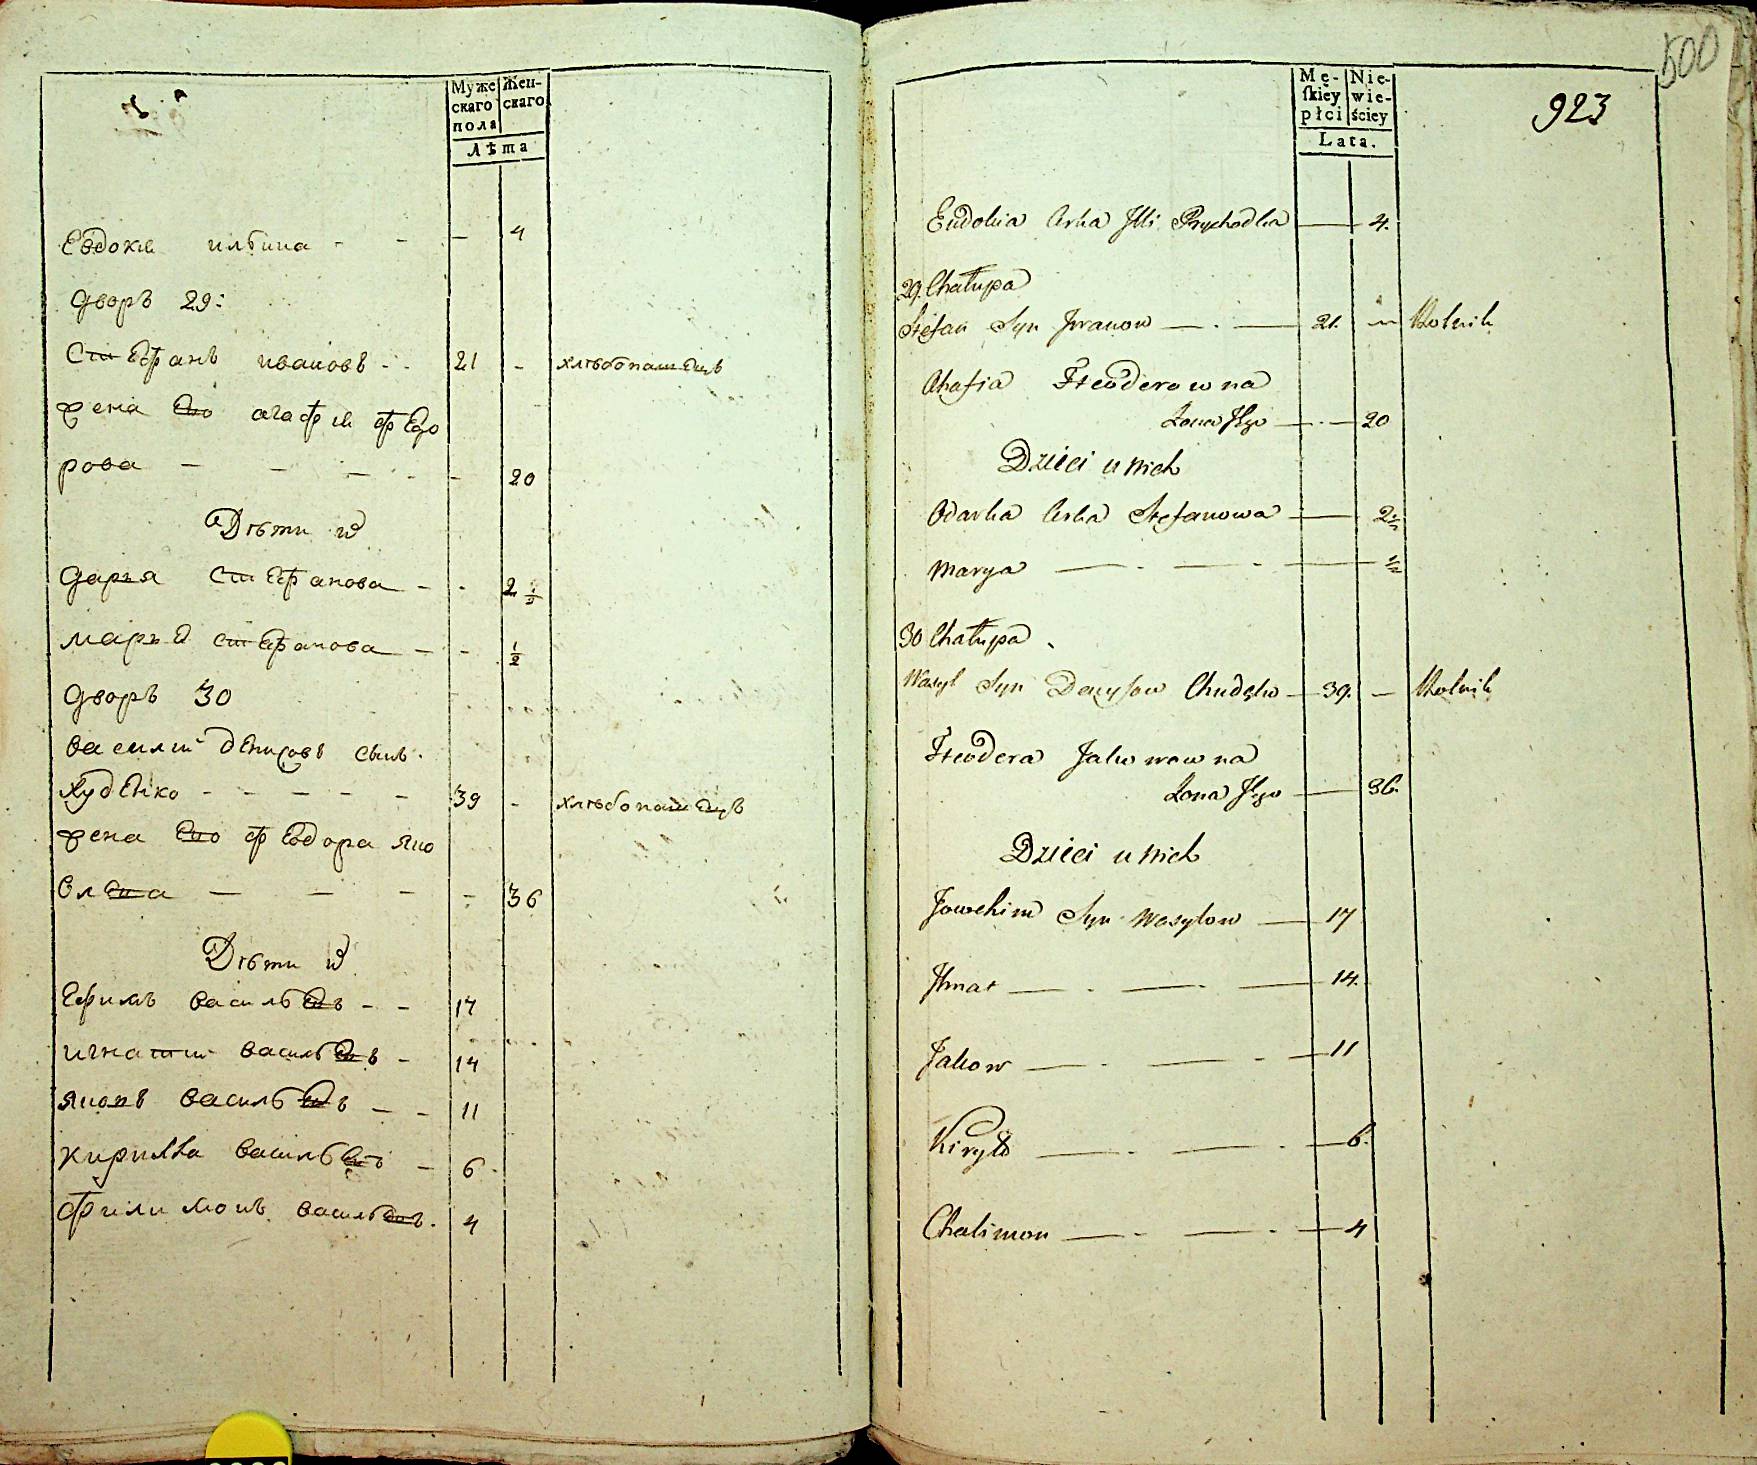 Муже Жен-
скаго скаго
пола
Лѣта
Евдокия ильина - - - 4
дворъ 29:
Стефанъ ивановъ - - 21 - хлѣбопашецъ
жена его агафия федо
рова - - - - - 20
Дѣти их
дарья стефанова - - 2 1/2
марья стефанова - - 1/2
дворъ 30
василий денисовъ сынъ
худенко - - - - - 39 - хлѣбопашецъ
жена его феодора яко
влева - - - - 36
Дѣти их
Ефимъ васильевъ - - 17
игнатий васильевъ - 14
яковъ васильевъ - - 11
кирилла васильевъ - 6
филимонъ васильевъ. 4
500
923
Mę- Nie-
ſkiey wie-
płci ściey
Lata.
Eudokia Crka Illi Prychodka — 4.
29. Chałupa
Stefan Syn Iwanow — . — 21. — Rolnik
Ahafia Fteoderowna
Zona Jego — . — 20
Dzieci u Nich
Odarka Crka Stefanowa — 2 1/2
Marya — . — . — 1/2
30 Chałupa
Wasyl Syn Denysow Chudęko — 39. — Rolnik
Fteodera Jakowowna
Zona Jego — 36.
Dzieci u Nich
Jowchim Syn Wasylow — 17
Ihnat — . — . — 14.
Jakow — . — . — 11
Kiryło — . — . — 6.
Chalimon — . — . — 4